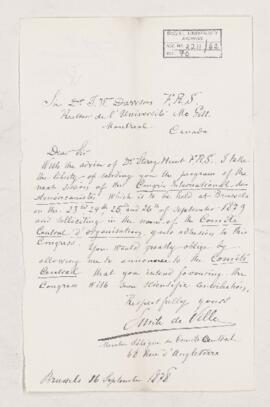 McGILL UNIVERSITY
ARCHIVES
ACC. NO. 2211/62
REF. 70
Dr. J. W. Dawson F.R.S.
Recteur de l'Université Mc Gill
Montreal
Canada
Dear Sir
With the advice of Dr Sterry Hunt F.R.S. I take
the liberty of sending you the program of the
next session of the Congrès International des
Américanistes which is to be held at Brussels
on the 23rd 24th 25th and 26th of September 1879
and soliciting in the name of the Comité
Central d'organisation, your adhesion to this
Congress. You would greatly oblige by
allowing me to announce to the Comité
Central that you intend favouring the
Congress with some scientific contribution.
Respectfully yours
Emile de Ville
Membre délégué du Comité Central
Rue d'Angleterre
Brussels 16 September 1878